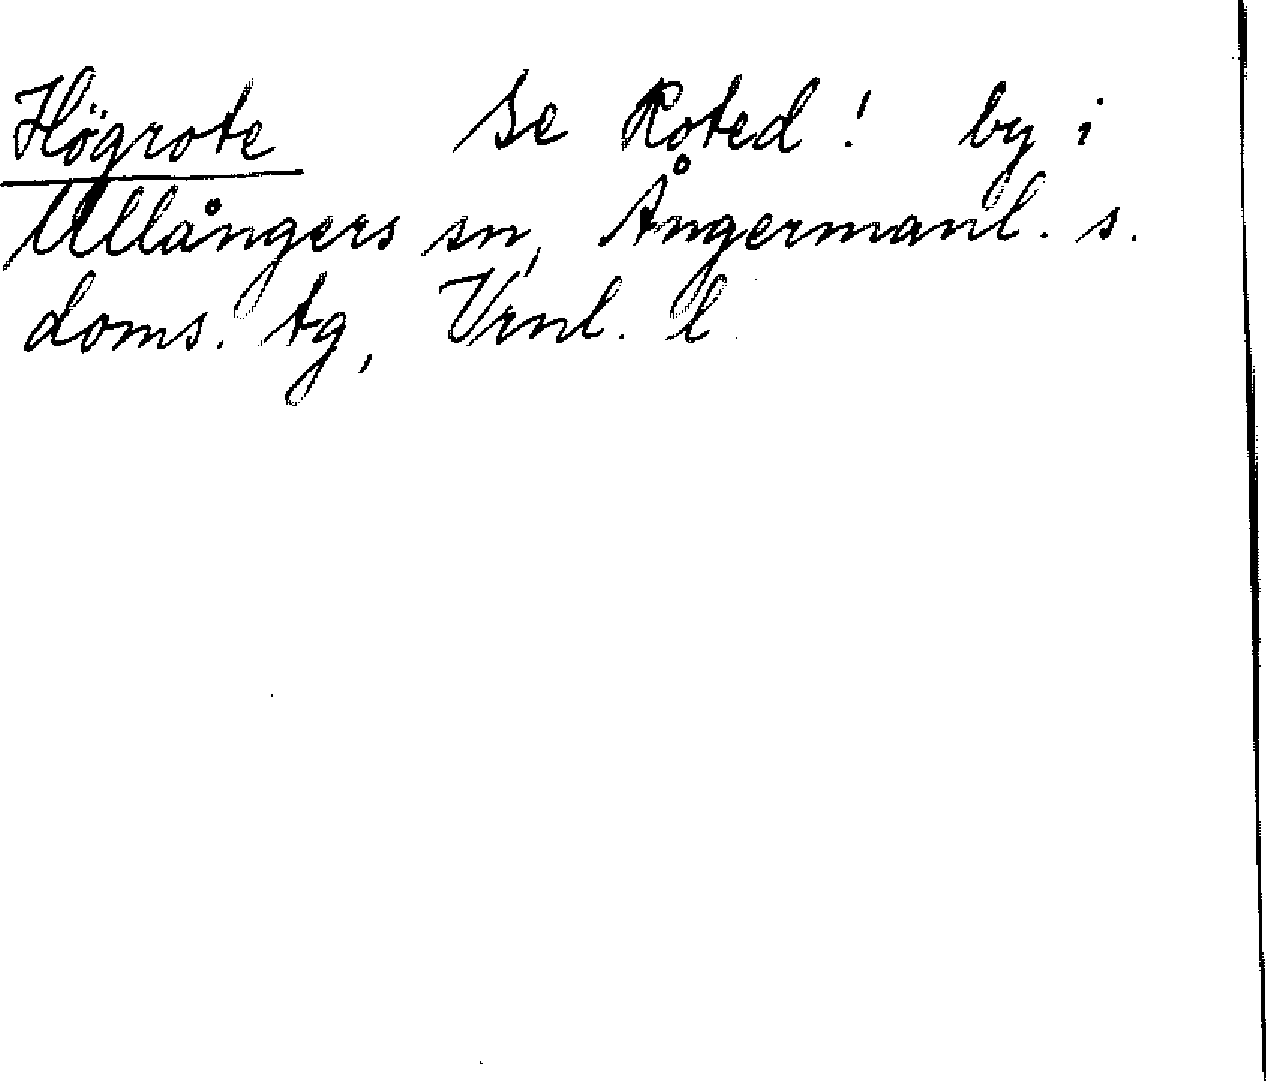 Högrote se Roted! by i
Ullångers sn, Ångermanl. s.
doms. tg, Vrnl. l